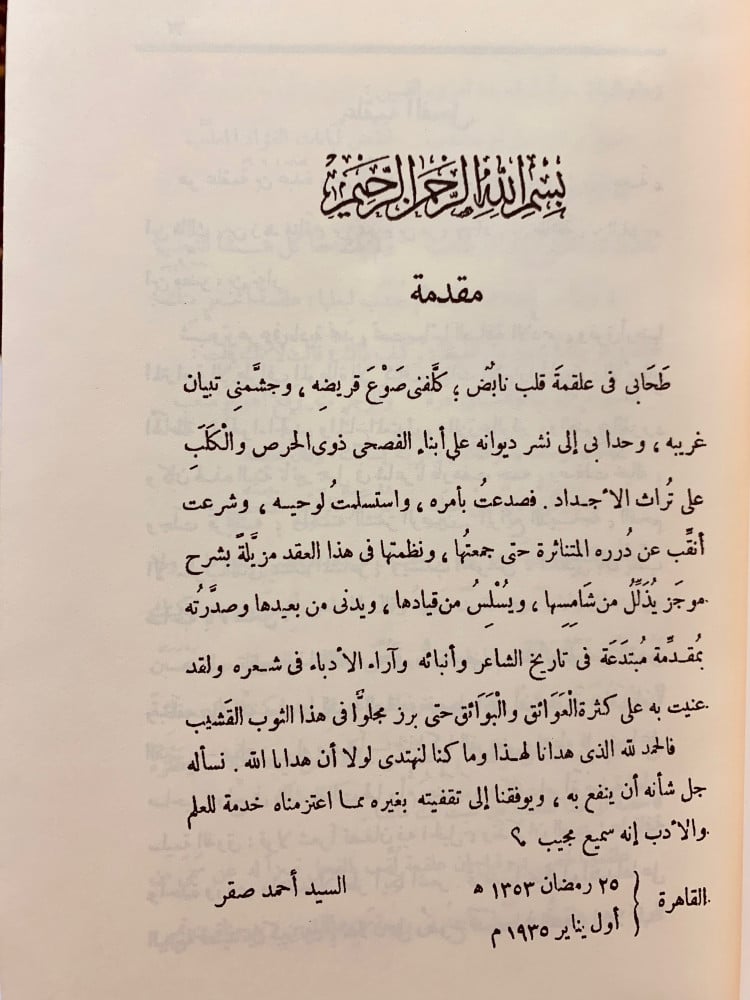 بِسْمِ اللهِ الرَّحْمَنِ الرَّحِيمِ
مقدمة
طَحَابى فى علقمةَ قلب نابُض ؛ كلَّفنى صَوْعَ قريضِه ، وجشَّمنِى تبيان
غريبه ، وحدا بى إلى نشر ديوانه على أبناء الفصحى ذوى الحرص والْكَلَبِ
على تُراث الأجداد . فصدعتُ بأمره ، واستسلمتُ لوحيه ، وشرعت
أنقِّب عن دُرره المتناثرة حتى جمعتُها ، ونظمتها فى هذا العقد مزيَّلةً بشرح
موجَز يُذَلِّلُ من شَامِسِها ، ويُسْلِسُ من قيادها ، ويدنى من بعيدها وصدَّرتُه
بمُقدِّمة مُبتَدَعَة فى تاريخ الشاعر وأنبائه وآراء الأدباء فى شعره ولقد
عنيت به على كثرة الْعَوَائق والْبَوَائق حتى برز مجلوًّا فى هذا الثوب القَشيب
فالحمد لله الذى هدانا لهذا وما كنا لنهتدى لولا أن هدانا الله . نسأله
جل شأنه أن ينفع به ، ويوفقنا إلى تقفيته بغيره مما اعتزمناه خدمة للعلم
والأدب إنه سميع مجيب ؟
القاهرة { ٢٥ رمضان ١٣٥٣ ه السيد أحمد صقر
أول يناير ١٩٣٥ م